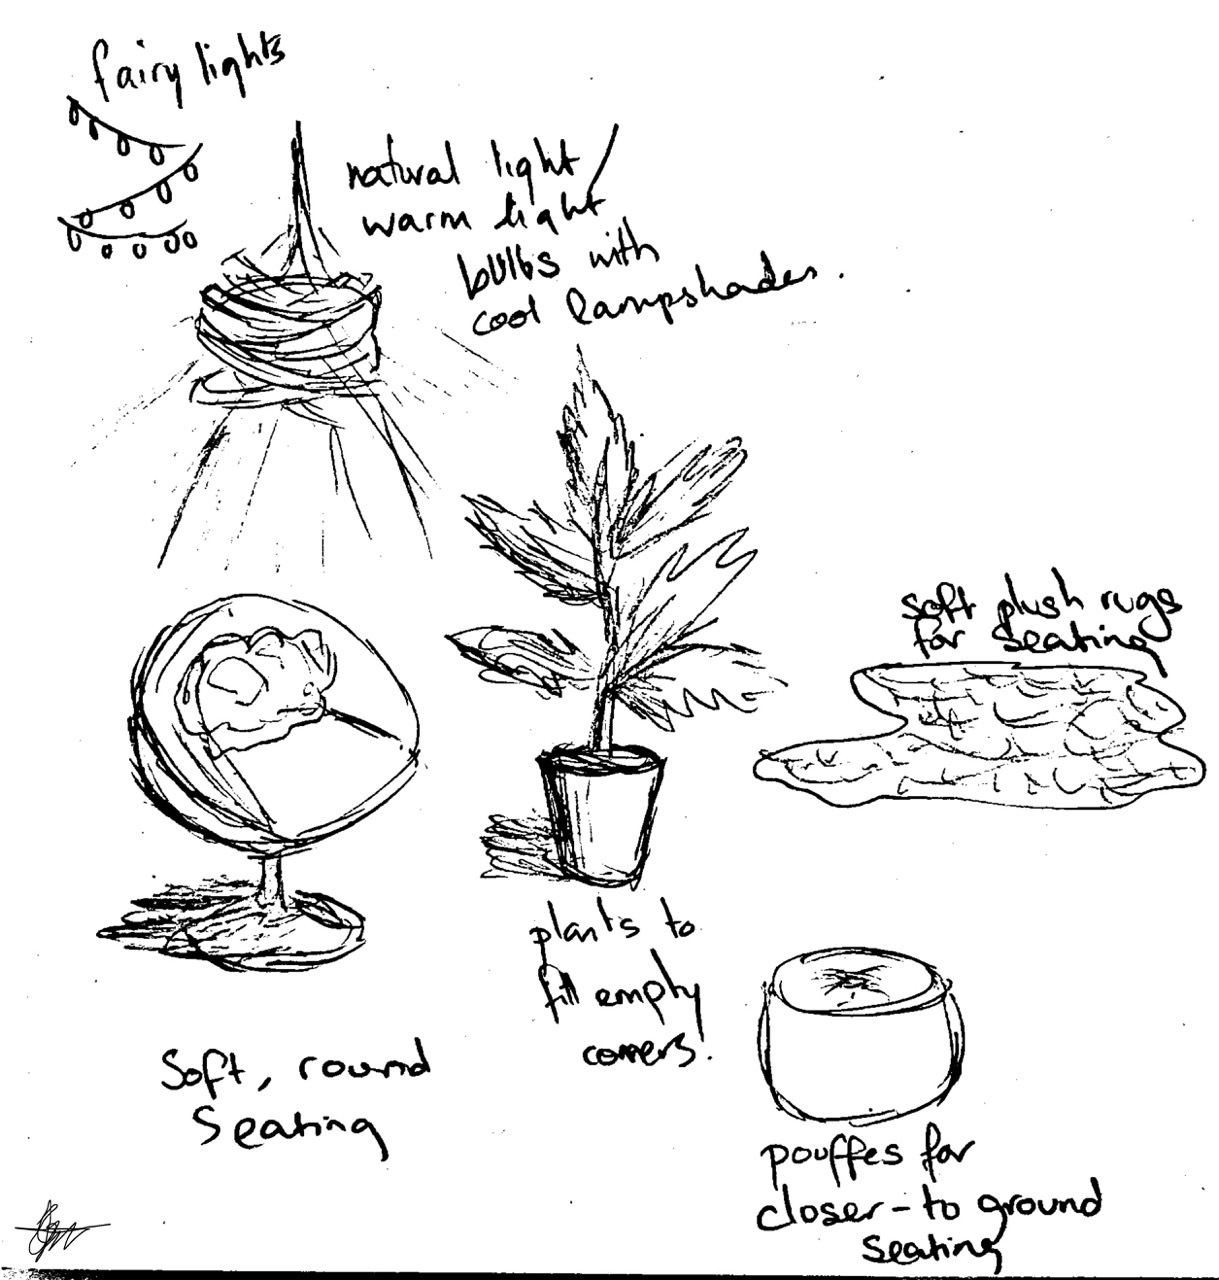 fairy lights
natural light /
warm light
bulbs with
cool lampshades.
soft plush rugs
for seating
plants to
fill empty
corners.
Soft, round
Seating
pouffes for
closer-to ground
seating